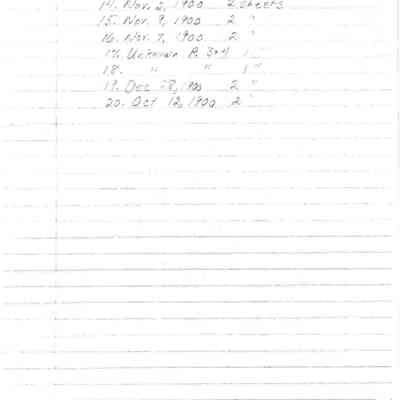 14. Nov. 2, 1900 2 sheets
15. Nov. 9, 1900 2 "
16. Nov. 7, 1900 2 "
17. Unknown P. 3+4 1 "
18. " " 1 "
19. Dec 28, 1900 2 "
20. Oct 12, 1900 2 "